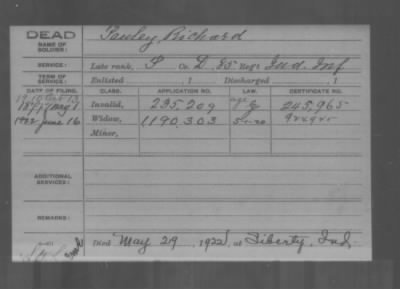 DEAD
NAME OF SOLDIER: Pauley, Richard
SERVICE: Late rank, P Co. D, 85 Reg't Ind. Inf
TERM OF SERVICE: Enlisted , 1 Discharged , 1
DATE OF FILING. CLASS. APPLICATION NO. LAW. CERTIFICATE NO.
1910 Oct 13
1877 May 1 Invalid, 235.209 age G 245,965
1922 June 16 Widow, 1190.303 5-1-20
Minor,
ADDITIONAL SERVICES:
REMARKS:
Died May 29, 1922, at Liberty, Ind.